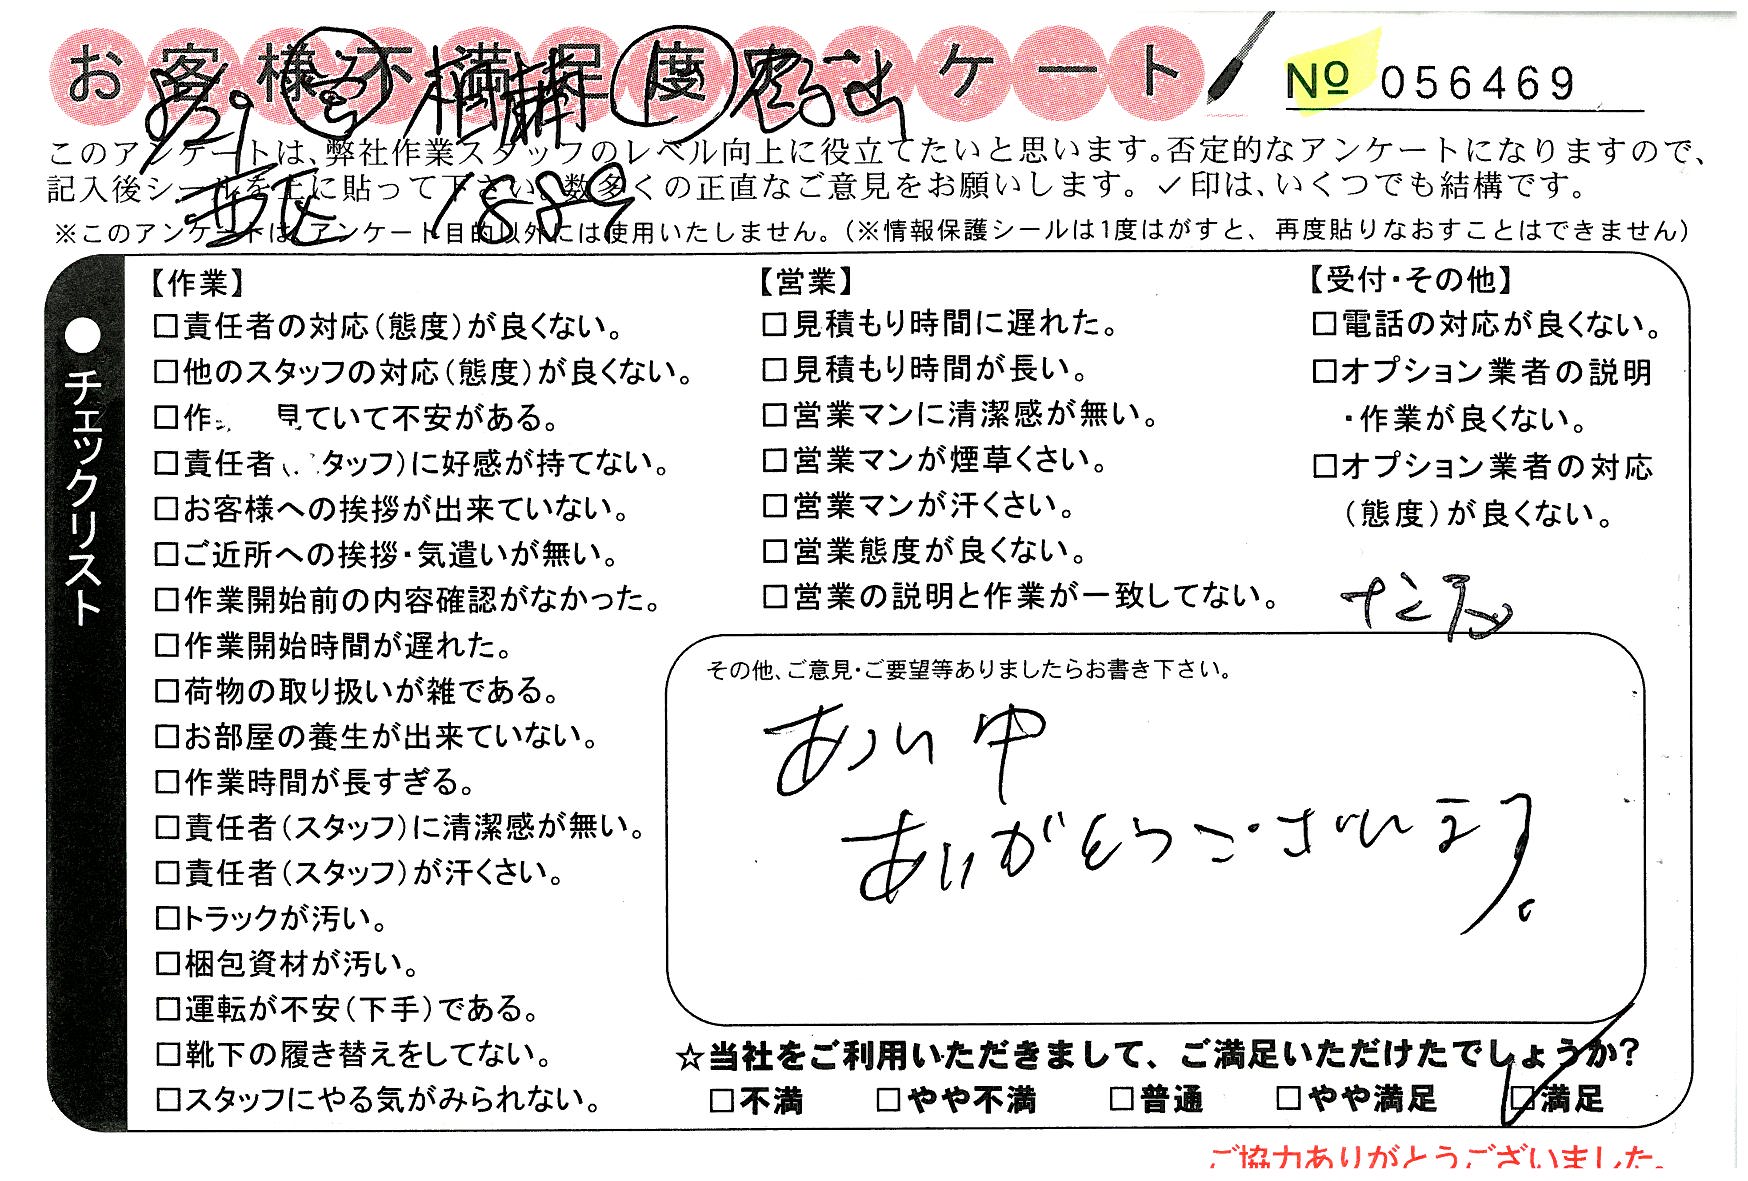 お客様不満足度アンケート
№ 056469
8/29
西区 1889
このアンケートは、弊社作業スタッフのレベル向上に役立てたいと思います。否定的なアンケートになりますので、
記入後シールを上に貼って下さい。数多くの正直なご意見をお願いします。✓印は、いくつでも結構です。
※このアンケートは、アンケート目的以外には使用いたしません。(※情報保護シールは1度はがすと、再度貼りなおすことはできません)
●チェックリスト
【作業】
□責任者の対応(態度)が良くない。
□他のスタッフの対応(態度)が良くない。
□作 見ていて不安がある。
□責任者(スタッフ)に好感が持てない。
□お客様への挨拶が出来ていない。
□ご近所への挨拶・気遣いが無い。
□作業開始前の内容確認がなかった。
□作業開始時間が遅れた。
□荷物の取り扱いが雑である。
□お部屋の養生が出来ていない。
□作業時間が長すぎる。
□責任者(スタッフ)に清潔感が無い。
□責任者(スタッフ)が汗くさい。
□トラックが汚い。
□梱包資材が汚い。
□運転が不安(下手)である。
□靴下の履き替えをしてない。
□スタッフにやる気がみられない。
【営業】
□見積もり時間に遅れた。
□見積もり時間が長い。
□営業マンに清潔感が無い。
□営業マンが煙草くさい。
□営業マンが汗くさい。
□営業態度が良くない。
□営業の説明と作業が一致してない。
【受付・その他】
□電話の対応が良くない。
□オプション業者の説明
・作業が良くない。
□オプション業者の対応
(態度)が良くない。
その他、ご意見・ご要望等ありましたらお書き下さい。
あつい中
ありがとうございます。
☆当社をご利用いただきまして、ご満足いただけたでしょうか?
□不満 □やや不満 □普通 □やや満足 ☑満足
ご協力ありがとうございました。